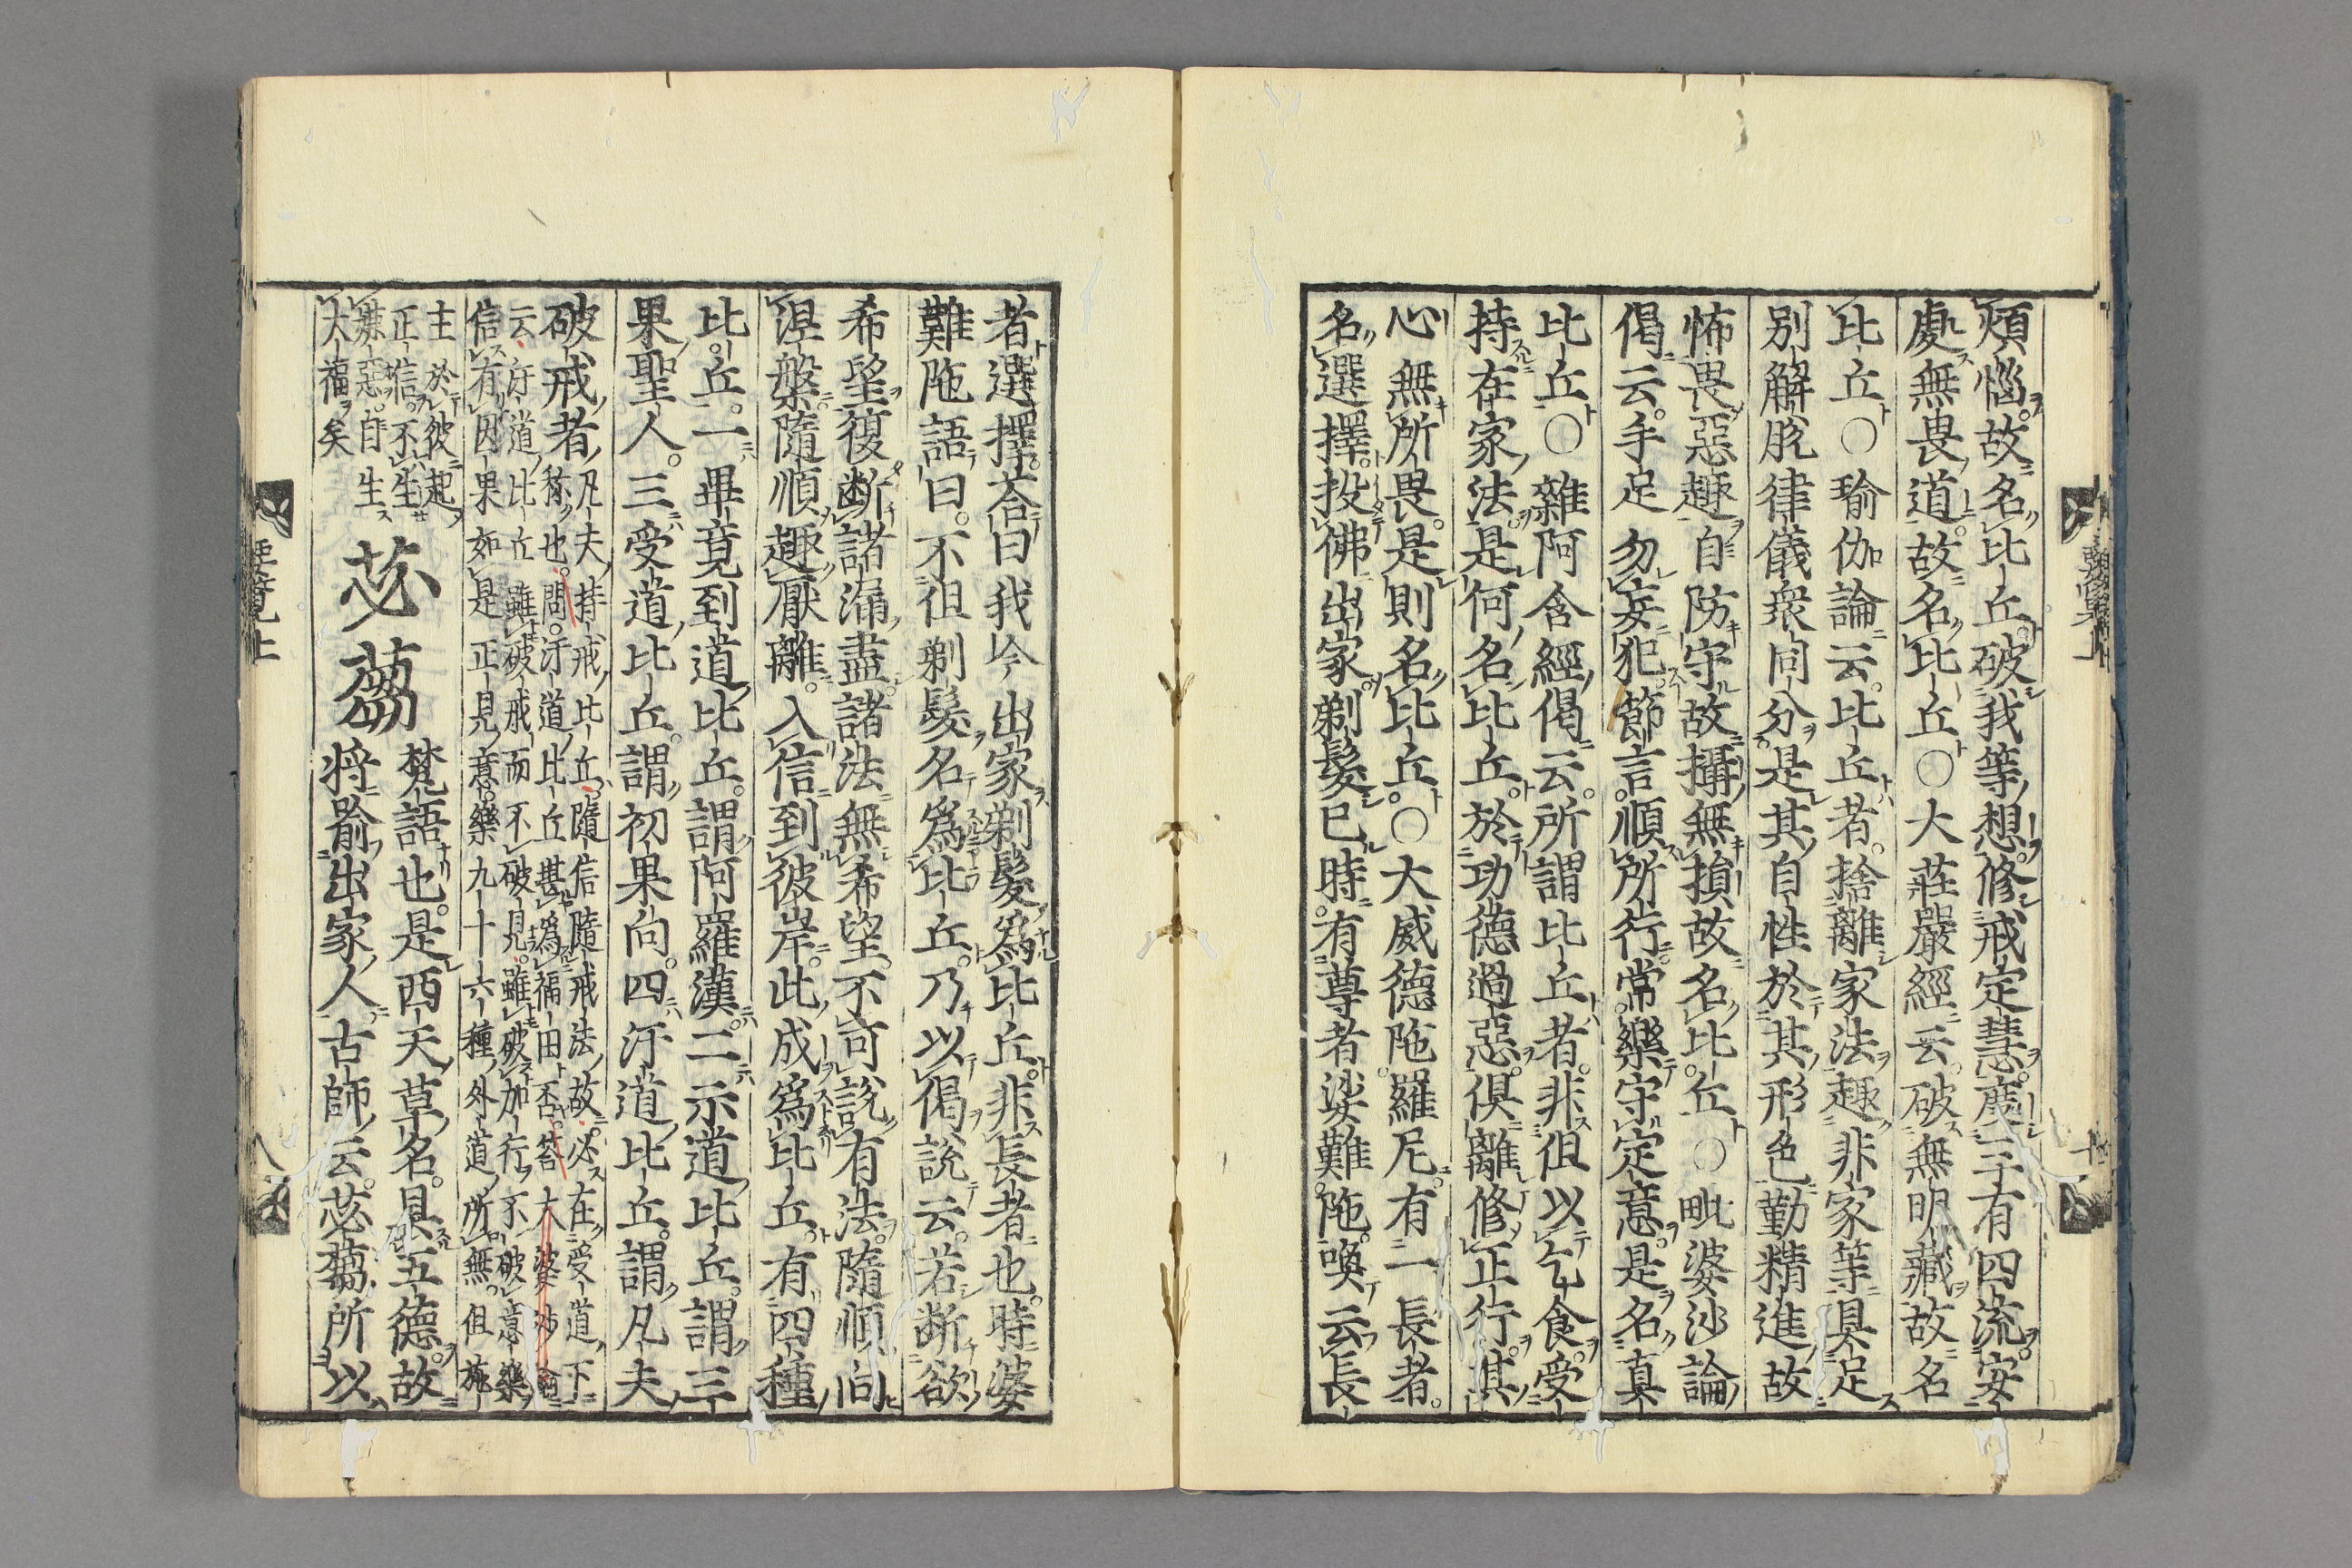 煩惱。故名比丘。破我等想。修戒定慧。度三有四流。安
處無畏道。故名比丘○大莊嚴經云。破無明藏故名
比丘○瑜伽論云。比丘者。捨離家法。趣非家等。具足
別解脫律儀衆同分。是其自性。於其形色。勤精進故
怖畏惡趣。自防守故。攝無損故。名比丘○毗婆沙論
偈云。手足勿妄犯。節言順所行。常樂守定意。是名真
比丘○雜阿含經偈云。所謂比丘者。非但以乞食。受
持在家法。是何名比丘。於功德過惡。俱離修正行。其
心無所畏。是則名比丘。○大威德陁羅尼。有一長者。
名選擇。投佛出家。剃髮已時。有尊者娑難陁。喚云。長
者選擇。荅曰我今出家剃髮。爲比丘。非長者也。時婆
難陁語曰。不但剃髮名爲比丘。乃以偈說云。若断欲
希望復断諸漏盡諸法無希望。不可說有法。隨順向
涅槃。隨順趣厭離。入信到彼岸。此成爲比丘。有四種
比丘。一畢竟到道比丘。謂阿羅漢。二示道比丘。謂三
果聖人。三受道比丘。謂初果向。四汙道比丘。謂凡夫
破戒者。凡夫持戒比丘。隨信隨戒法。故必在受道下
稱也。問。汙道比丘。甚爲福田否。答大婆沙論
云。汙道比丘。雖破戒而不破見。雖破加行。不破意樂
信有因果。如是正見意樂。九十六種外道所無。但施
主於彼起
正信。不生
嫌惡。自生
大福矣
苾蒭
梵語也。是西天草名。具五德。故
将喻出家人。古師云。苾蒭所以
要覽上
八